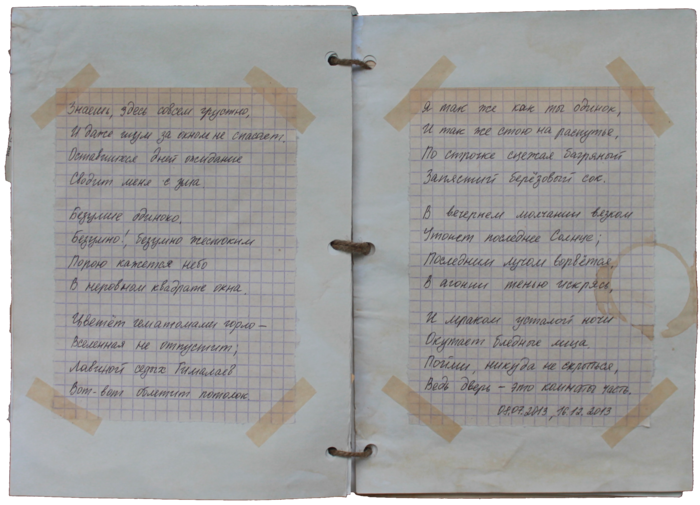 Знаешь, здесь совсем грустно,
И даже шум за окном не спасает.
Оставшихся дней ожидание
Сводит меня с ума
Безумие одиноко.
Безумно!, безумно жестоким
Порою кажется небо
В неровном квадрате окна.
Цветёт гематомами горло –
Вселенная не отпустит;
Лавиной седых Гималаев
Вот-вот облетит потолок
Я так же как ты одинок,
И так же стою на распутье,
По строчке слежая багряной
Запястий берёзовый сок.
В вечернем молчании вязком
Утонет последнее Солнце;
Последним лучом ворвётся,
В агонии тенью искрясь.
И мраком усталой ночи
Окутает бледные лица
Пойми, никуда не скрыться,
Ведь дверь – это комнаты часть.
01.07.2013, 16.12.2013